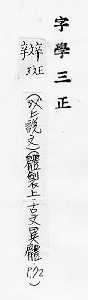 字學三正
辬
斑
(以上說文)(體製上·古文異體P.72)